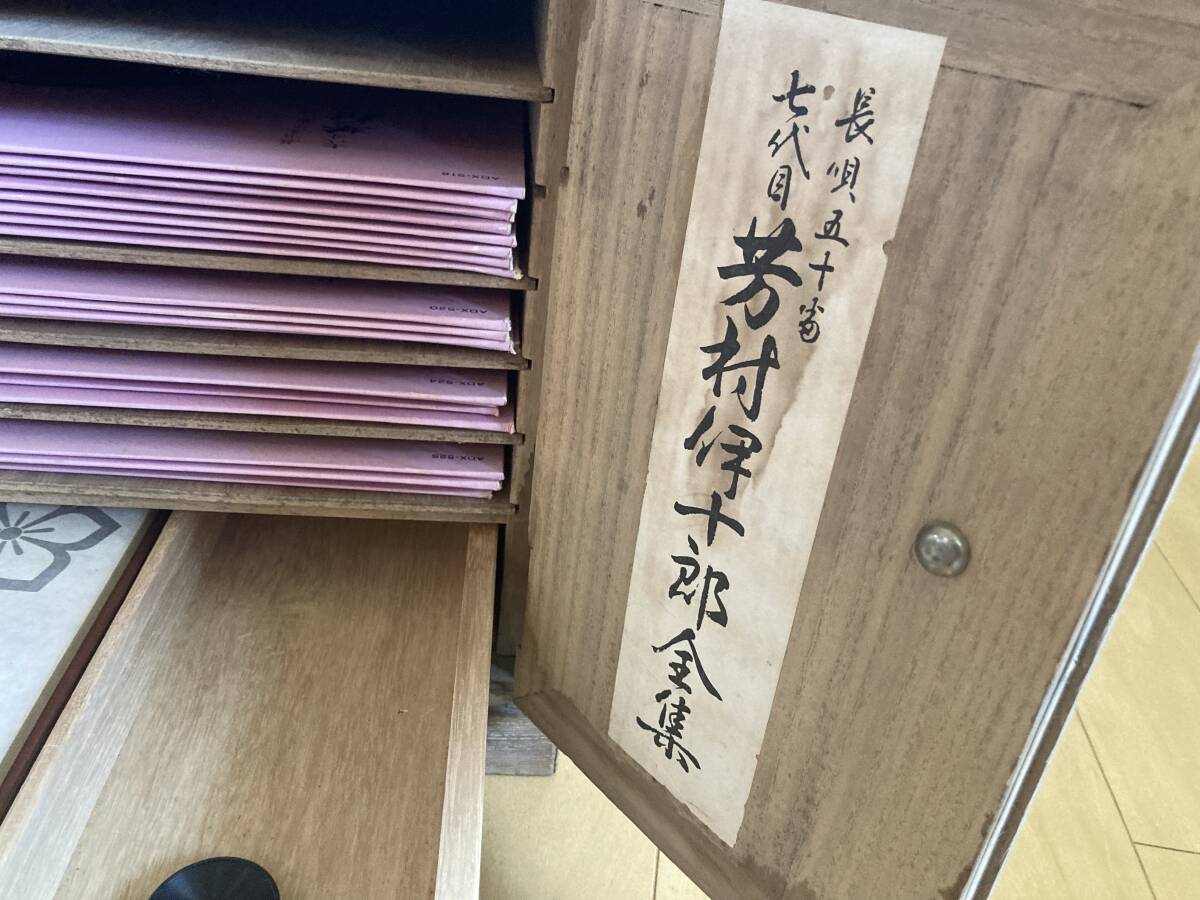 長唄五十番
七代目 芳村伊十郎全集
ADX-520
ADX-524